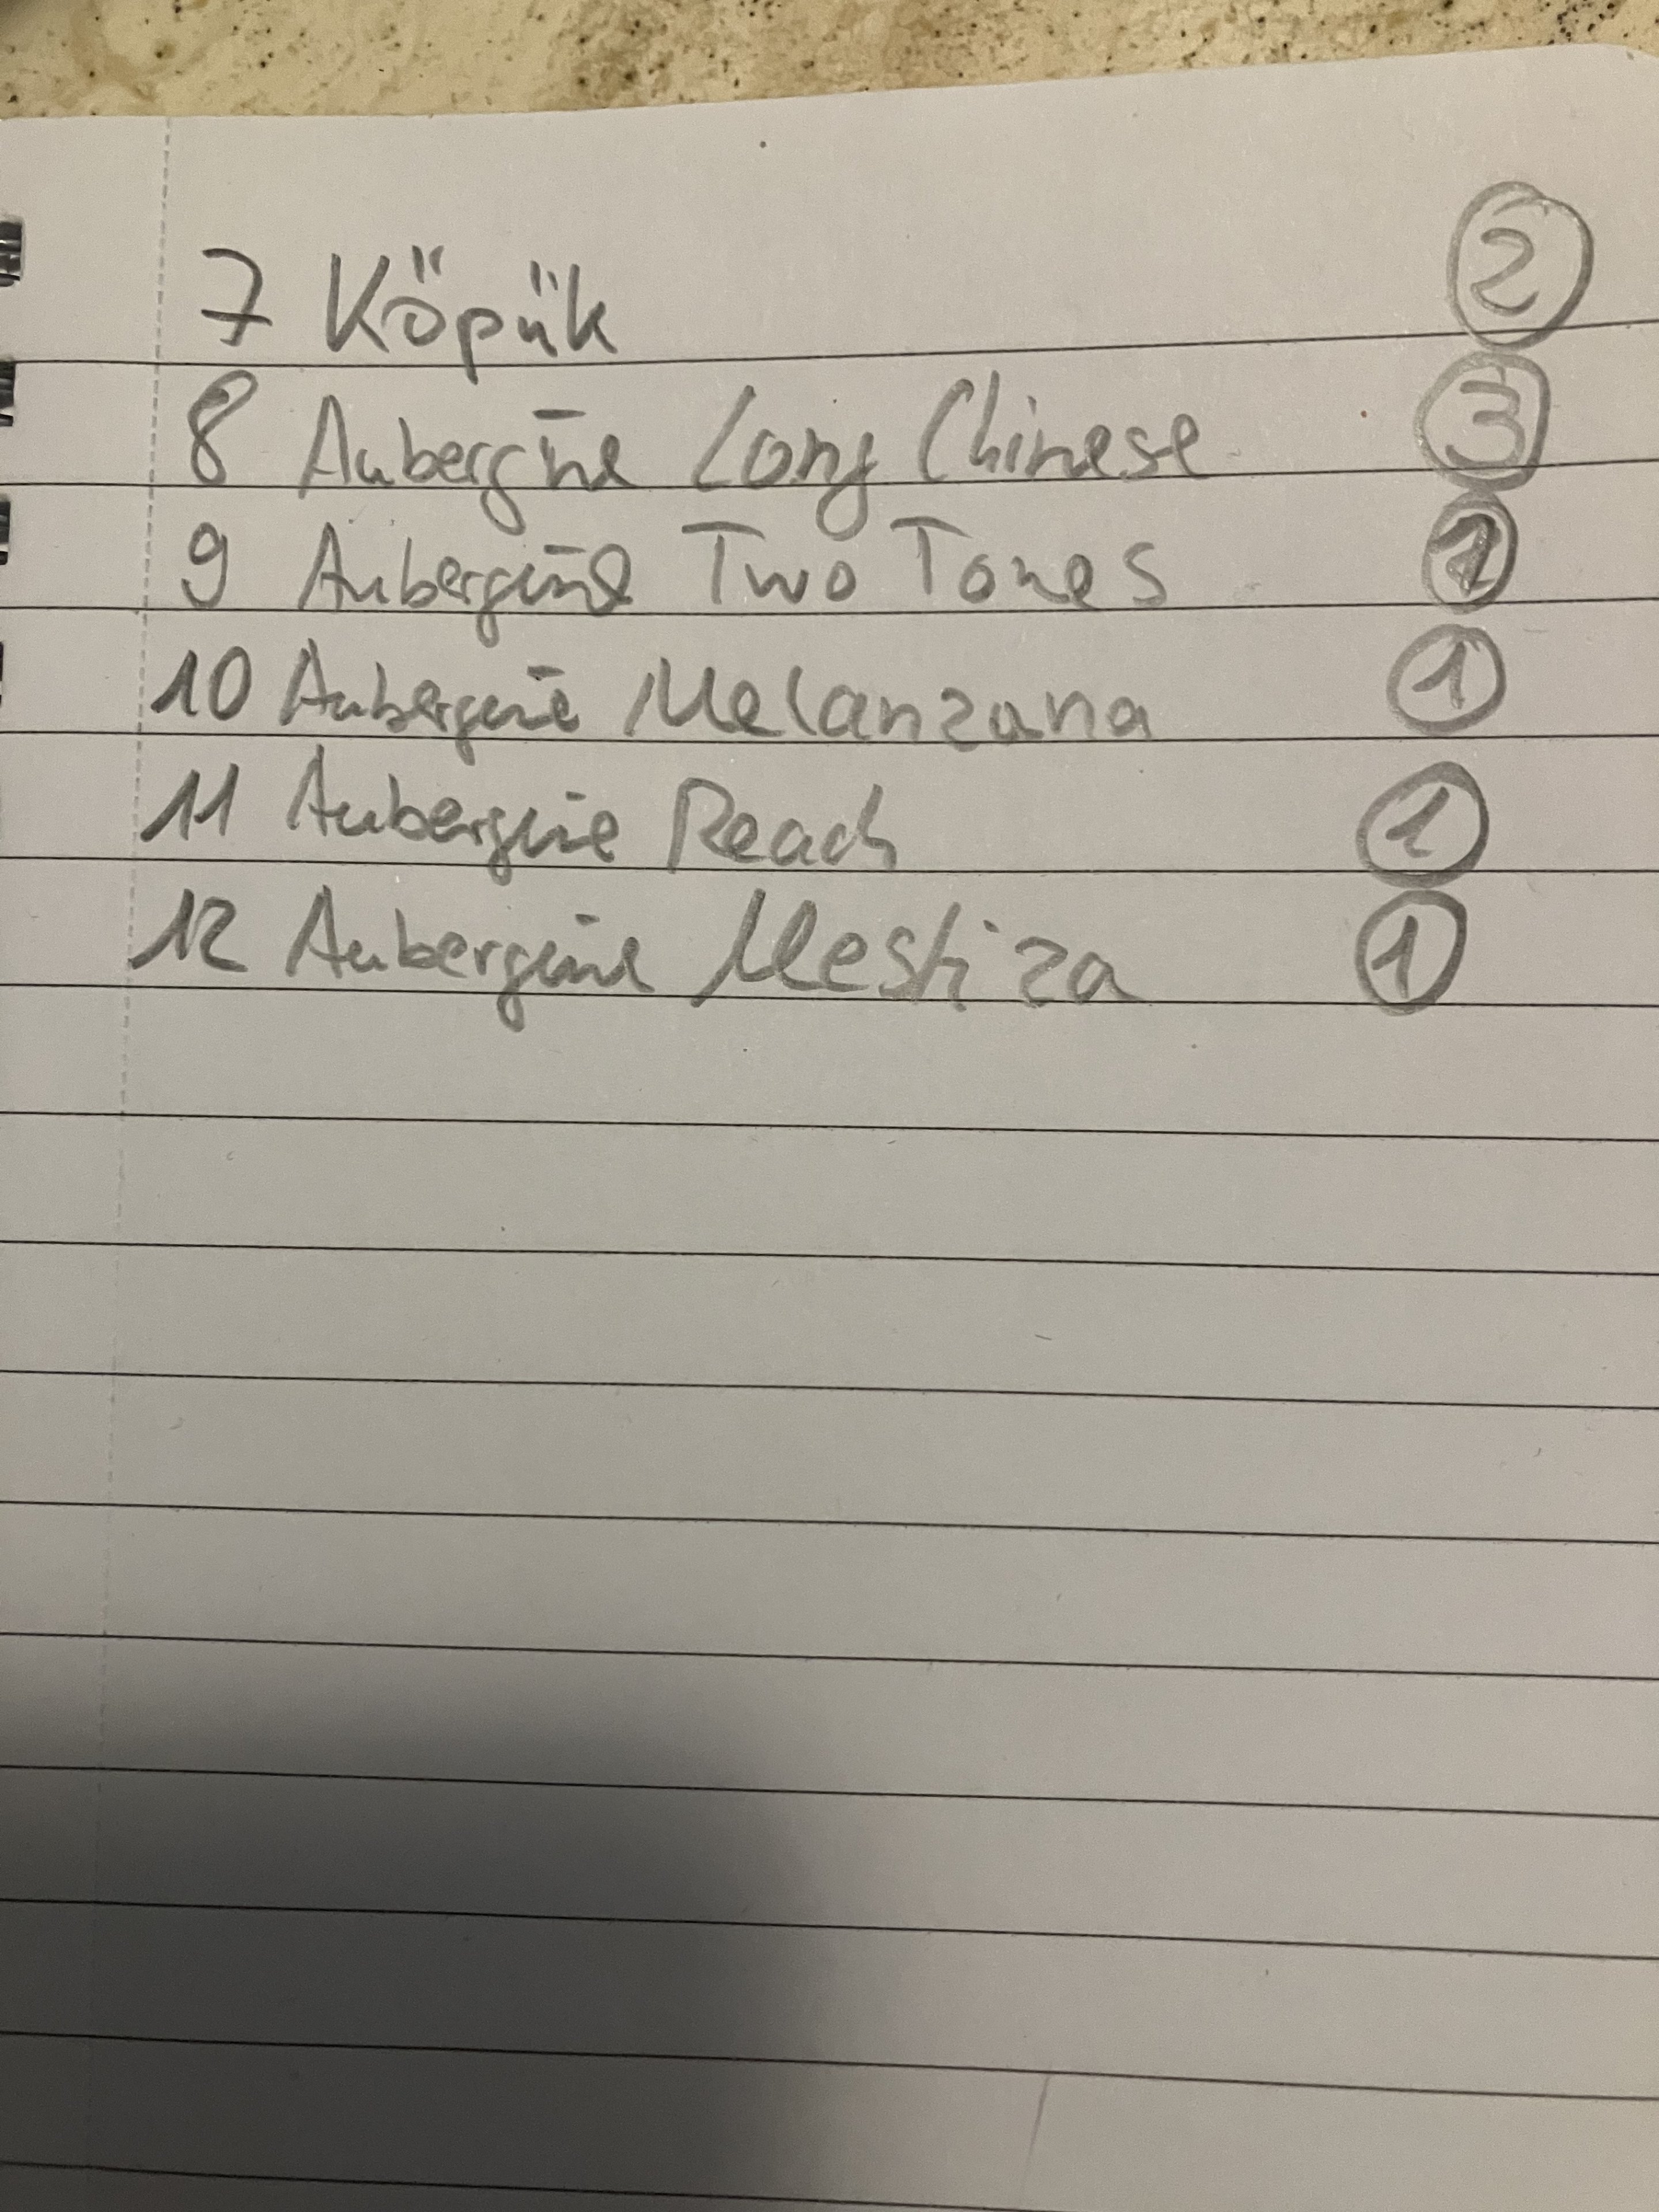 7 Köpük 2
8 Aubergine Long Chinese 3
9 Aubergine Two Tones
10 Aubergine Melanzana 1
11 Aubergine Reach 1
12 Aubergine Mestiza 1